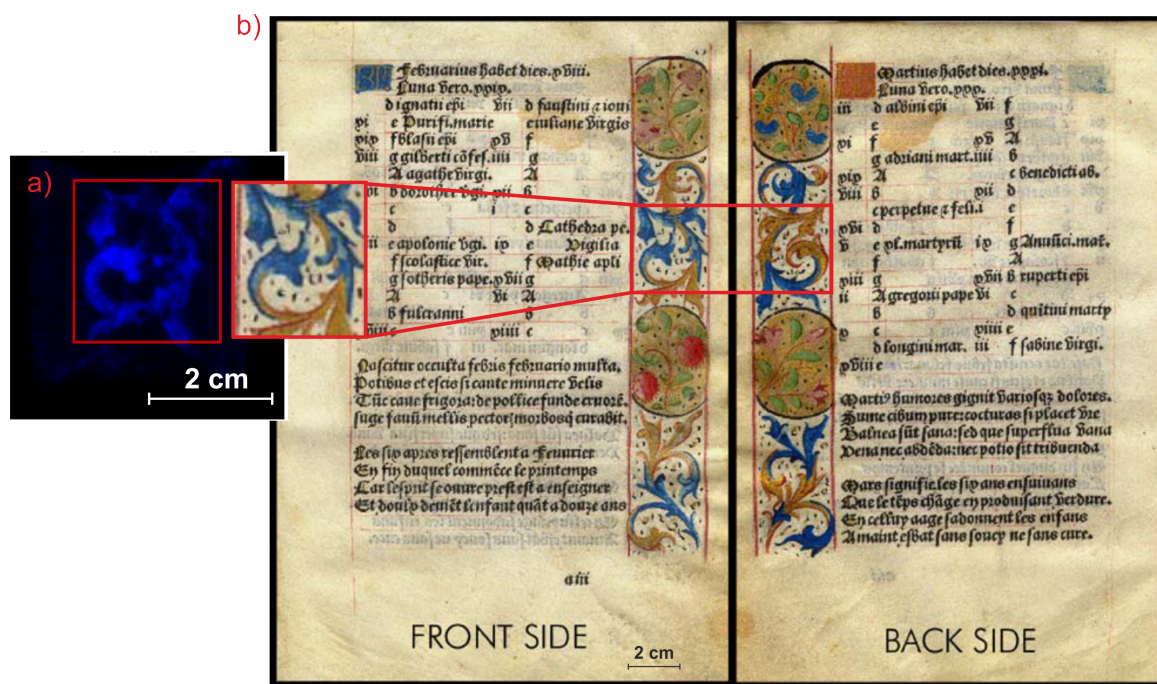 a)
2 cm
b)
Februarius habet dies.xxviii.
Luna vero.xxix.
d ignatii epi vii d faustini
xi e Purifi.marie e iuliane virgis
xix f blasii epi xv f
viii g gilberti cõfes.iiii g
A agathe virgi. A
b dorothee vgi. xii b
c i c
d d Cathedra pe.
e apolonie vgi. ix e Vigilia
f scolastice vir. f Mathie apli
g sotheris pape.xvii g
A vi A
b fulcranni b
c xiiii c
Nascitur occulta febris februario multa.
Potibus et escis si caute minuere velis
Tũc caue frigora: de pollice funde cruorẽ.
suge fauũ mellis pector; morbosq curabit.
Les six apres ressemblent a Feuurier
En fin duquel commẽce le printemps
Car lesprit se ouure prest est a enseigner
Et doulx deuiẽt lenfant quãt a douze ans
aiii
FRONT SIDE
2 cm
Martius habet dies.xxxi.
Luna vero.xxx.
iii d albini epi vii f
e g
xi f xv A
g adriani mart.iiii b
xix A c benedicti ab.
viii b xii d
c perpetue & feli.i e
xvi d f
v e xl.martyrũ ix g Anũũci.mar.
f A
xiii g xvii b ruperti epi
ii A gregorii pape vi c
b d quitini marty
x c xiiii e
d longini mar. iii f sabine virgi.
xviii e
Marti⁹ humores gignit variosq; dolores.
Sume cibum pure: cocturas si placet vre
Balnea sũt sana: sed que superflua vana
Vena nec abdẽda: nec potio sit tribuenda
Mars signifie les six ans ensuiuans
Que le tẽps chãge en produisant verdure.
En celluy aage sadonnent les enfans
A maint esbat sans soucy ne sans cure.
BACK SIDE